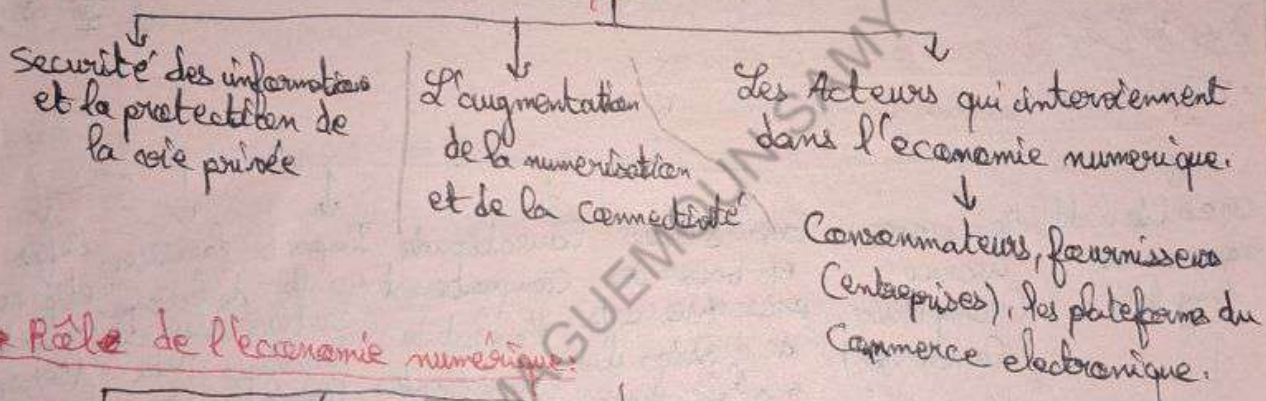 securité des informations
et la protection de
la vie privée
L'augmentation
de la numerisation
et de la connectivité
Les Acteurs qui interviennent
dans l'economie numerique.
Consommateurs, fournisseurs
(entreprises), les plateforms du
Commerce electronique.
Rôle de l'economie numérique:
MAGUEMOUN SAMY